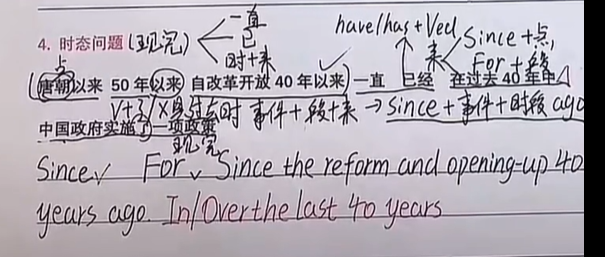 一直
have/has + Ved
4. 时态问题 (现完) 已
Since + 点,
时+来
来 For + 段
点
(唐朝以来 50 年以来 自改革开放 40 年以来 一直 已经 在过去 40 年中
V+了/X具过去时 事件+段+来 → since + 事件 + 时段 ago
中国政府实施了一项政策
现完
Since✓ For✓ Since the reform and opening-up 40
years ago. In/Over the last 40 years